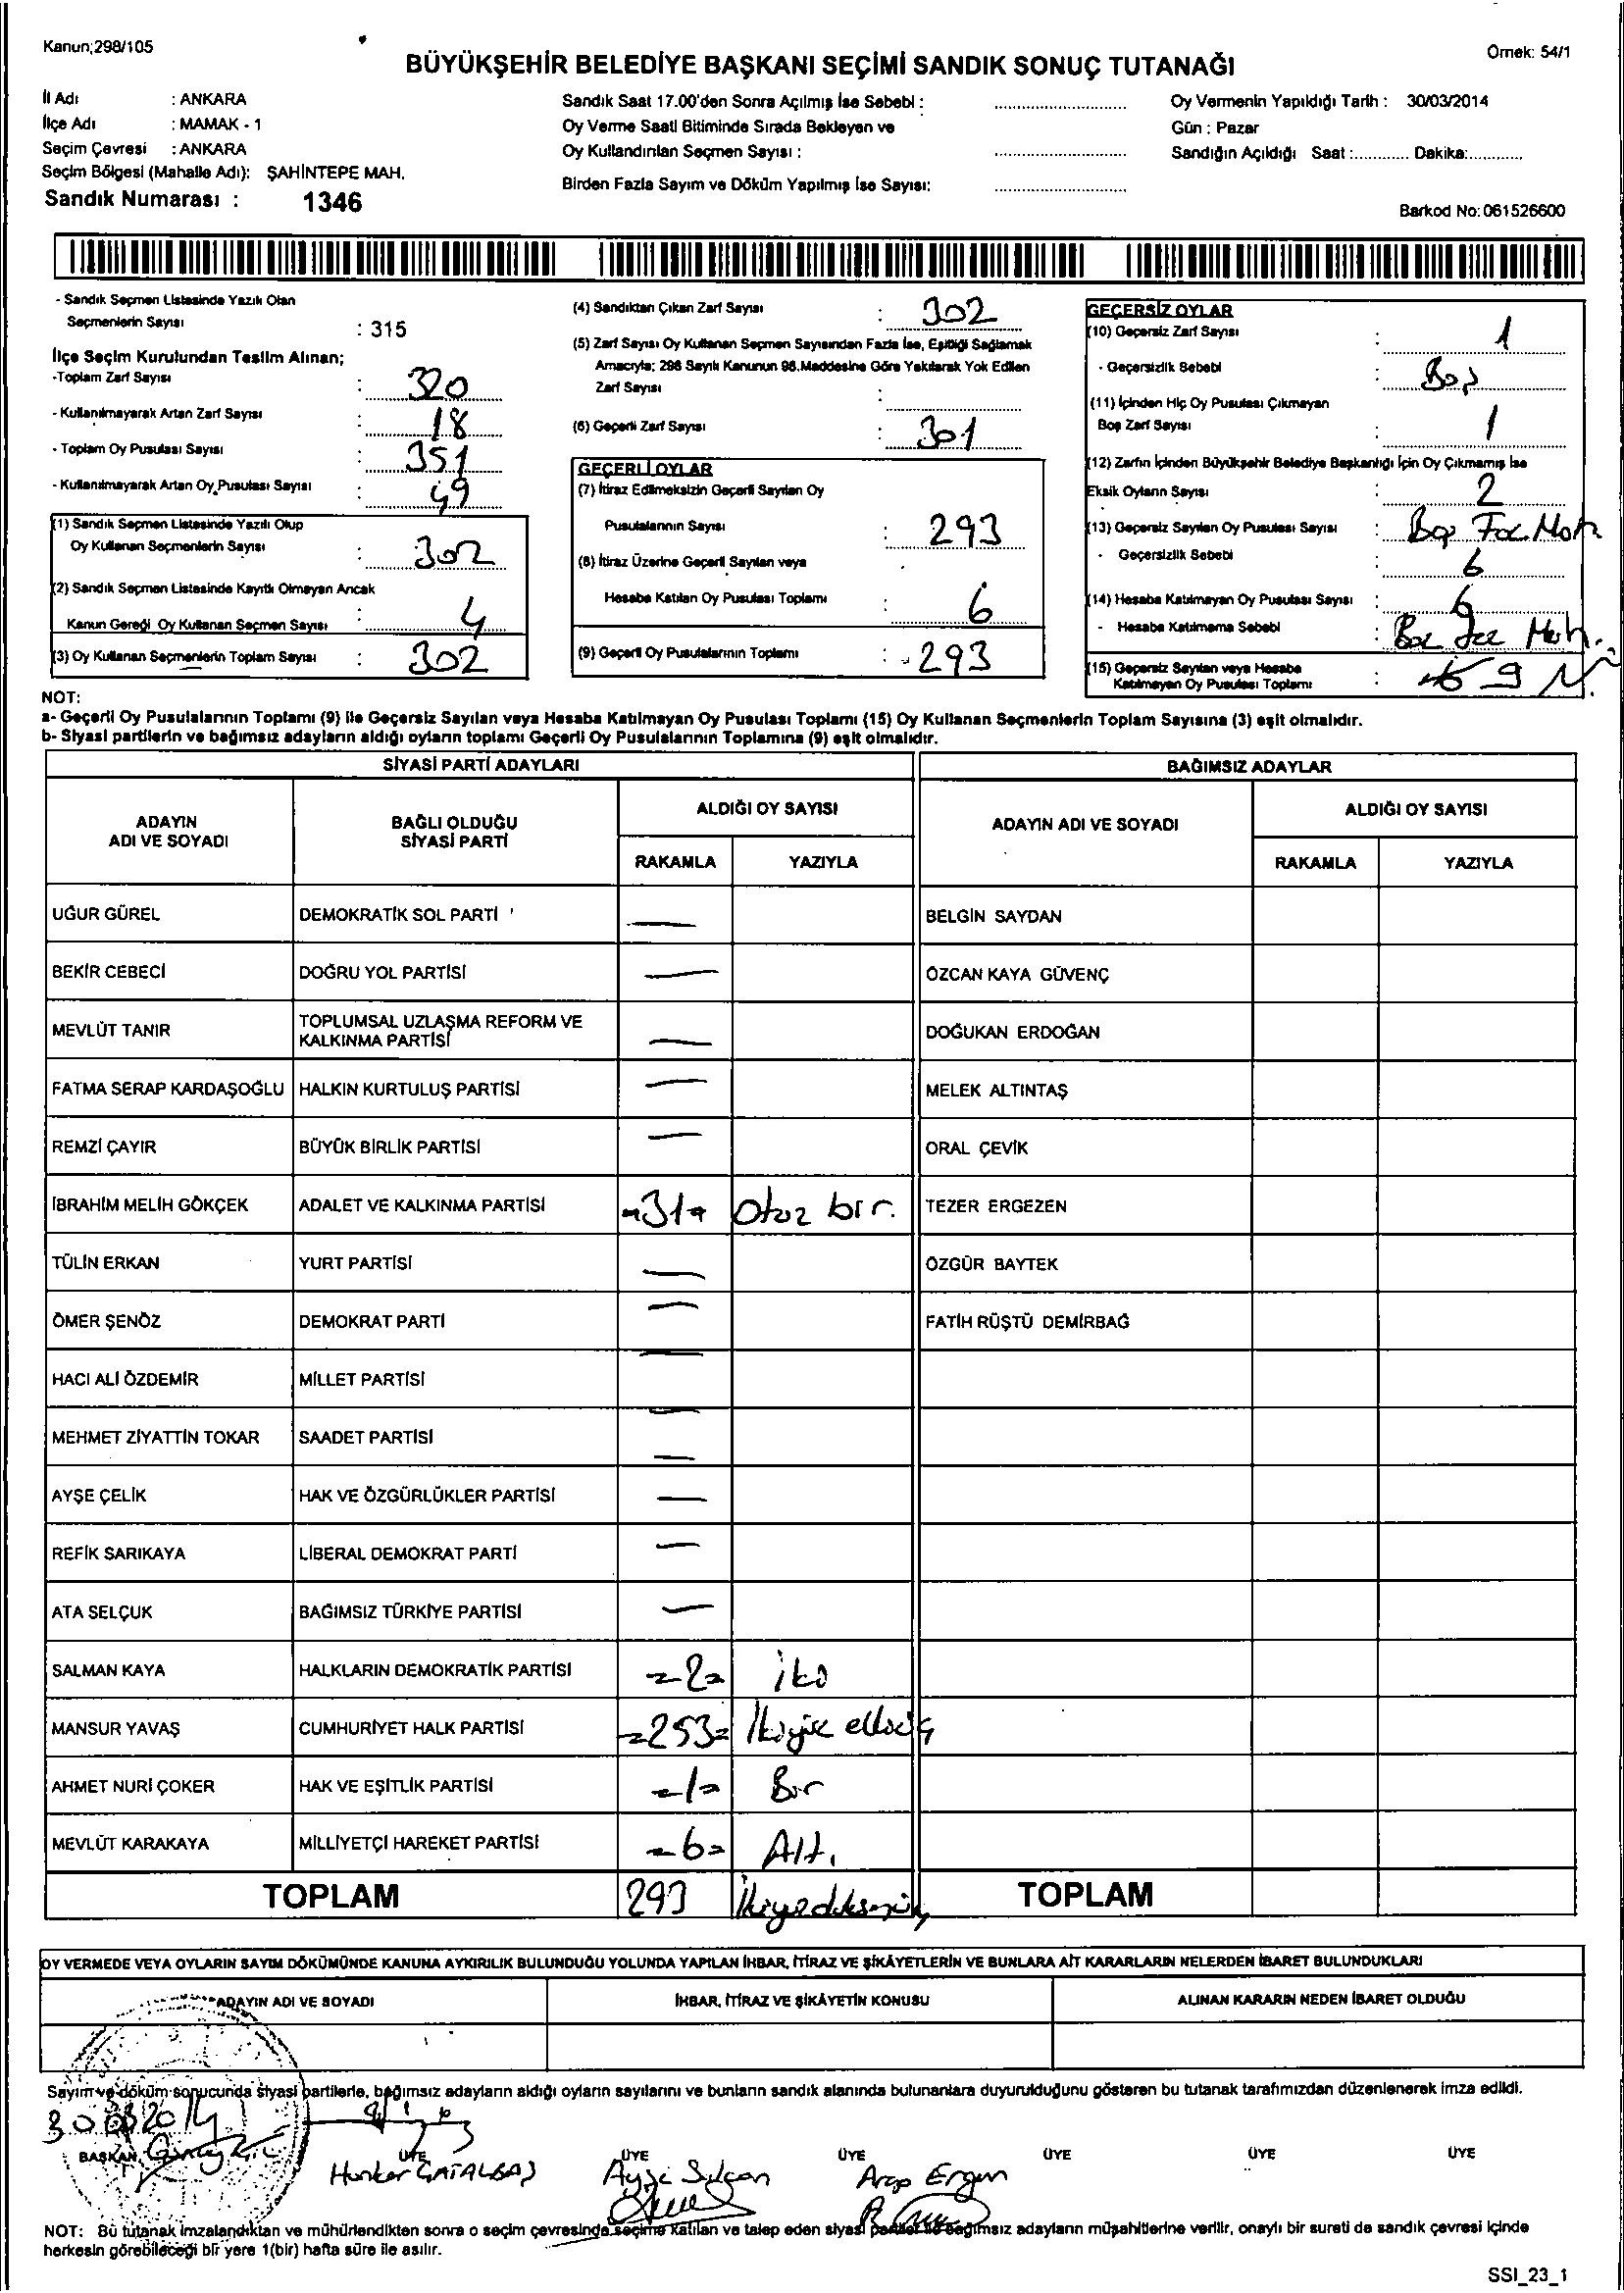 Kanun;298/105
Örnek: 54/1
BÜYÜKŞEHİR BELEDİYE BAŞKANI SEÇİMİ SANDIK SONUÇ TUTANAĞI
İl Adı : ANKARA
İlçe Adı : MAMAK - 1
Seçim Çevresi : ANKARA
Seçim Bölgesi (Mahalle Adı): ŞAHİNTEPE MAH.
Sandık Numarası : 1346
Sandık Saat 17.00'den Sonra Açılmış İse Sebebi :
Oy Verme Saati Bitiminde Sırada Bekleyen ve
Oy Kullandırılan Seçmen Sayısı :
Birden Fazla Sayım ve Döküm Yapılmış İse Sayısı:
Oy Vermenin Yapıldığı Tarih : 30/03/2014
Gün : Pazar
Sandığın Açıldığı Saat :............ Dakika:............
Barkod No: 061526600
- Sandık Seçmen Listesinde Yazılı Olan
Seçmenlerin Sayısı : 315
İlçe Seçim Kurulundan Teslim Alınan;
-Toplam Zarf Sayısı : 320
- Kullanılmayarak Artan Zarf Sayısı : 18
- Toplam Oy Pusulası Sayısı : 351
- Kullanılmayarak Artan Oy Pusulası Sayısı : 49
(1) Sandık Seçmen Listesinde Yazılı Olup
Oy Kullanan Seçmenlerin Sayısı : 302
(2) Sandık Seçmen Listesinde Kayıtlı Olmayan Ancak
Kanun Gereği Oy Kullanan Seçmen Sayısı : 4
(3) Oy Kullanan Seçmenlerin Toplam Sayısı : 302
(4) Sandıktan Çıkan Zarf Sayısı : 302
(5) Zarf Sayısı Oy Kullanan Seçmen Sayısından Fazla İse, Eşitliği Sağlamak
Amacıyla; 298 Sayılı Kanunun 98.Maddesine Göre Yakılarak Yok Edilen
Zarf Sayısı :
(6) Geçerli Zarf Sayısı : 301
GEÇERLİ OYLAR
(7) İtiraz Edilmeksizin Geçerli Sayılan Oy
Pusulalarının Sayısı : 293
(8) İtiraz Üzerine Geçerli Sayılan veya
Hesaba Katılan Oy Pusulası Toplamı : 6
(9) Geçerli Oy Pusulalarının Toplamı : 293
GEÇERSİZ OYLAR
(10) Geçersiz Zarf Sayısı : 1
- Geçersizlik Sebebi : Boş
(11) İçinden Hiç Oy Pusulası Çıkmayan
Boş Zarf Sayısı : 1
(12) Zarfın İçinden Büyükşehir Belediye Başkanlığı İçin Oy Çıkmamış İse
Eksik Oyların Sayısı : 2
(13) Geçersiz Sayılan Oy Pusulası Sayısı :
- Geçersizlik Sebebi : 6
(14) Hesaba Katılmayan Oy Pusulası Sayısı : 6
- Hesaba Katılmama Sebebi :
(15) Geçersiz Sayılan veya Hesaba
Katılmayan Oy Pusulası Toplamı : 9
NOT:
a- Geçerli Oy Pusulalarının Toplamı (9) ile Geçersiz Sayılan veya Hesaba Katılmayan Oy Pusulası Toplamı (15) Oy Kullanan Seçmenlerin Toplam Sayısına (3) eşit olmalıdır.
b- Siyasi partilerin ve bağımsız adayların aldığı oyların toplamı Geçerli Oy Pusulalarının Toplamına (9) eşit olmalıdır.
SİYASİ PARTİ ADAYLARI
BAĞIMSIZ ADAYLAR
ADAYIN ADI VE SOYADI
BAĞLI OLDUĞU SİYASİ PARTİ
ALDIĞI OY SAYISI
RAKAMLA YAZIYLA
ADAYIN ADI VE SOYADI
ALDIĞI OY SAYISI
RAKAMLA YAZIYLA
UĞUR GÜREL DEMOKRATİK SOL PARTİ — BELGİN SAYDAN
BEKİR CEBECİ DOĞRU YOL PARTİSİ — ÖZCAN KAYA GÜVENÇ
MEVLÜT TANIR TOPLUMSAL UZLAŞMA REFORM VE KALKINMA PARTİSİ — DOĞUKAN ERDOĞAN
FATMA SERAP KARDAŞOĞLU HALKIN KURTULUŞ PARTİSİ — MELEK ALTINTAŞ
REMZİ ÇAYIR BÜYÜK BİRLİK PARTİSİ — ORAL ÇEVİK
İBRAHİM MELİH GÖKÇEK ADALET VE KALKINMA PARTİSİ =31= Otuz bir. TEZER ERGEZEN
TÜLİN ERKAN YURT PARTİSİ — ÖZGÜR BAYTEK
ÖMER ŞENÖZ DEMOKRAT PARTİ — FATİH RÜŞTÜ DEMİRBAĞ
HACI ALİ ÖZDEMİR MİLLET PARTİSİ —
MEHMET ZİYATTİN TOKAR SAADET PARTİSİ —
AYŞE ÇELİK HAK VE ÖZGÜRLÜKLER PARTİSİ —
REFİK SARIKAYA LİBERAL DEMOKRAT PARTİ —
ATA SELÇUK BAĞIMSIZ TÜRKİYE PARTİSİ —
SALMAN KAYA HALKLARIN DEMOKRATİK PARTİSİ =2= iki
MANSUR YAVAŞ CUMHURİYET HALK PARTİSİ =253=
AHMET NURİ ÇOKER HAK VE EŞİTLİK PARTİSİ =1= Bir
MEVLÜT KARAKAYA MİLLİYETÇİ HAREKET PARTİSİ =6= Altı
TOPLAM 293 TOPLAM
OY VERMEDE VEYA OYLARIN SAYIM DÖKÜMÜNDE KANUNA AYKIRILIK BULUNDUĞU YOLUNDA YAPILAN İHBAR, İTİRAZ VE ŞİKÂYETLERİN VE BUNLARA AİT KARARLARIN NELERDEN İBARET BULUNDUKLARI
ADAYIN ADI VE SOYADI İHBAR, İTİRAZ VE ŞİKÂYETİN KONUSU ALINAN KARARIN NEDEN İBARET OLDUĞU
Sayım ve döküm sonucunda siyasi partilerle, bağımsız adayların aldığı oyların sayılarını ve bunların sandık alanında bulunanlara duyurulduğunu gösteren bu tutanak tarafımızdan düzenlenerek imza edildi.
BAŞKAN ÜYE ÜYE ÜYE ÜYE ÜYE ÜYE
Arap Ergun
NOT: Bu tutanak imzalandıktan ve mühürlendikten sonra o seçim çevresinde seçime katılan ve talep eden siyasi partiler ile bağımsız adayların müşahitlerine verilir, onaylı bir sureti de sandık çevresi içinde
herkesin görebileceği bir yere 1(bir) hafta süre ile asılır.
SSI_23_1